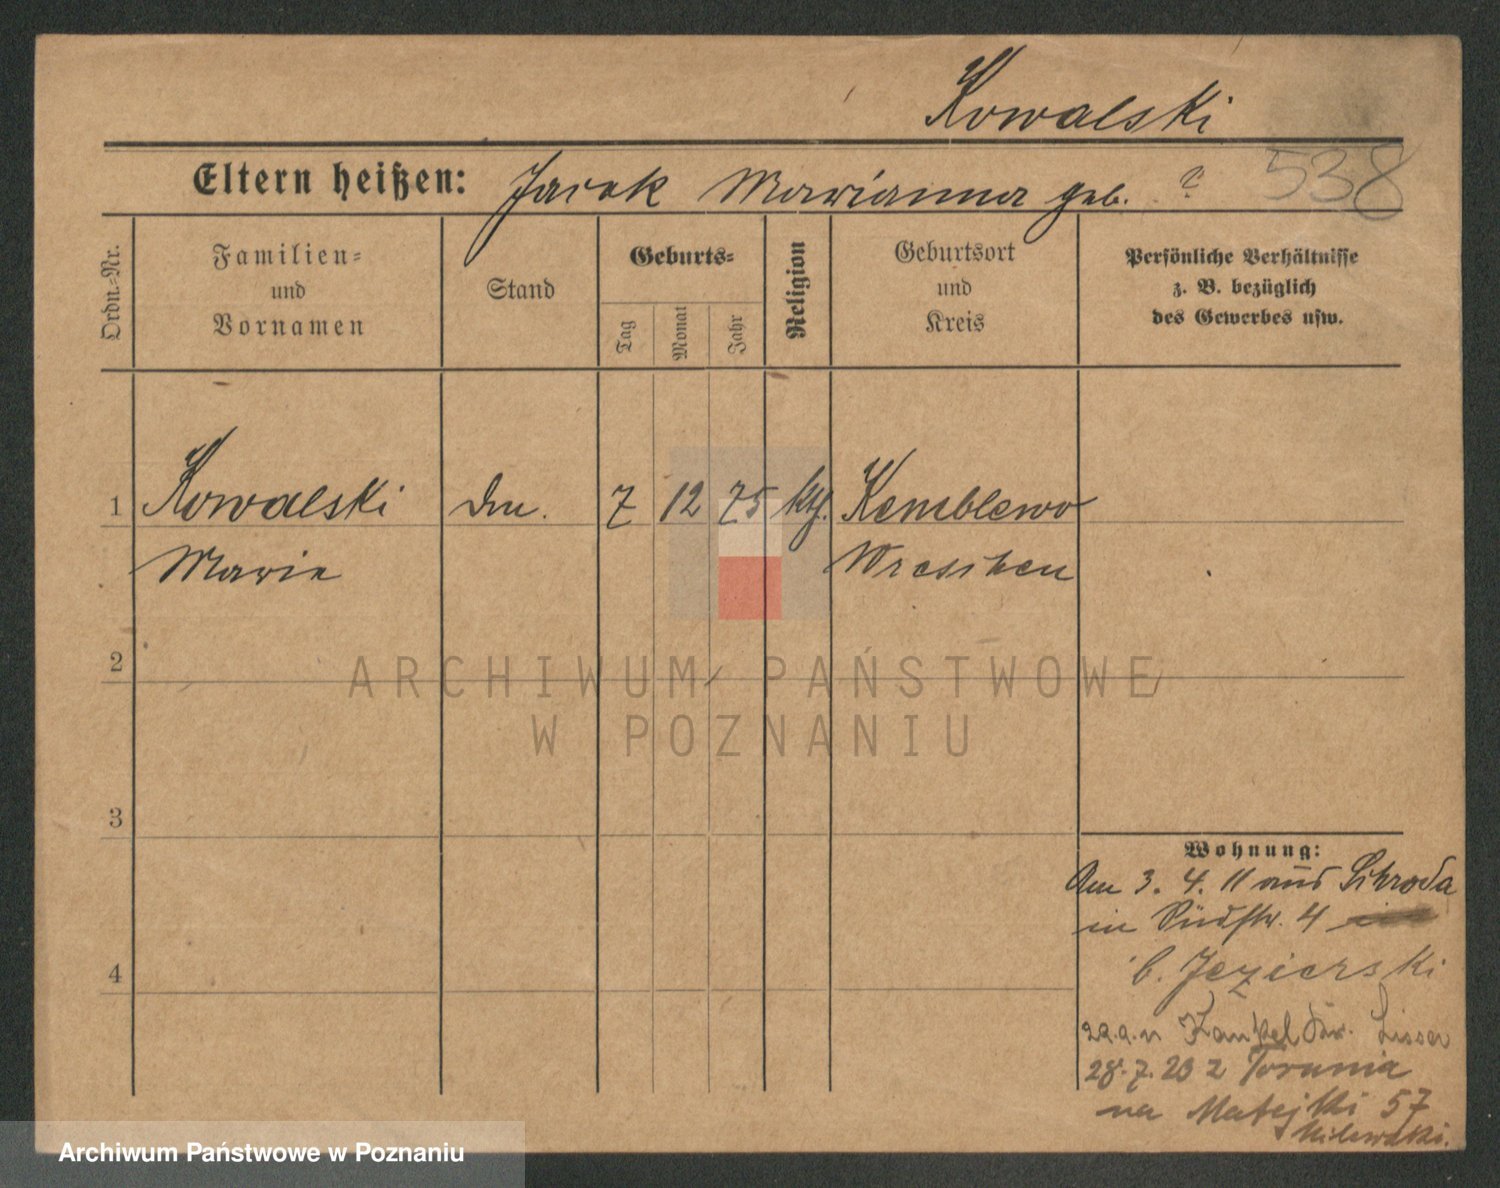 Kowalski
Eltern heißen: Jacek Marianna geb. ?
538
Ordn.-Nr.
Familien-
und
Vornamen
Stand
Geburts-
Tag
Monat
Jahr
Religion
Geburtsort
und
Kreis
Persönliche Verhältnisse
z. B. bezüglich
des Gewerbes usw.
1 Kowalski 7 12 75 kth. Kemblewo
Marie Wreschen
2
3
4
ARCHIWUM PAŃSTWOWE
W POZNANIU
Wohnung:
Am 3. 4. 11 aus Schroda
in Südstr. 4
b. Jezierski
Lissa
28.7.23 z Torunia
na Matejki 57
Archiwum Państwowe w Poznaniu